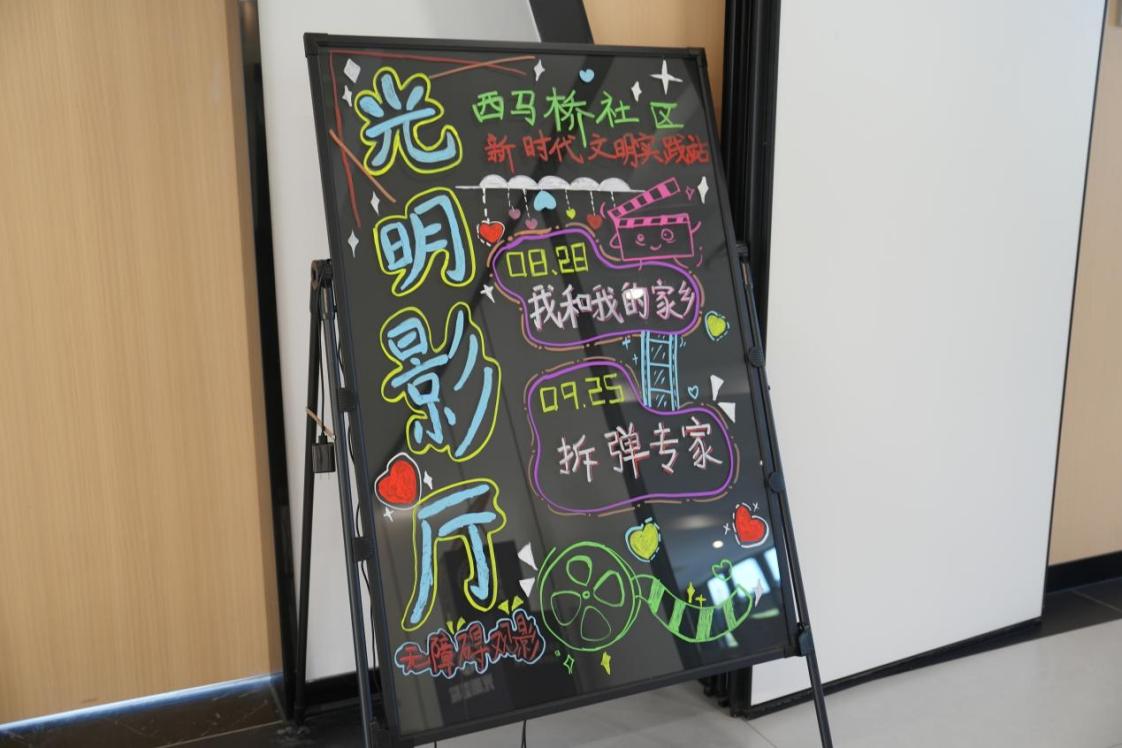 光明影厅
西马桥社区
新时代文明实践站
08.28
我和我的家乡
09.25
拆弹专家
无障碍观影